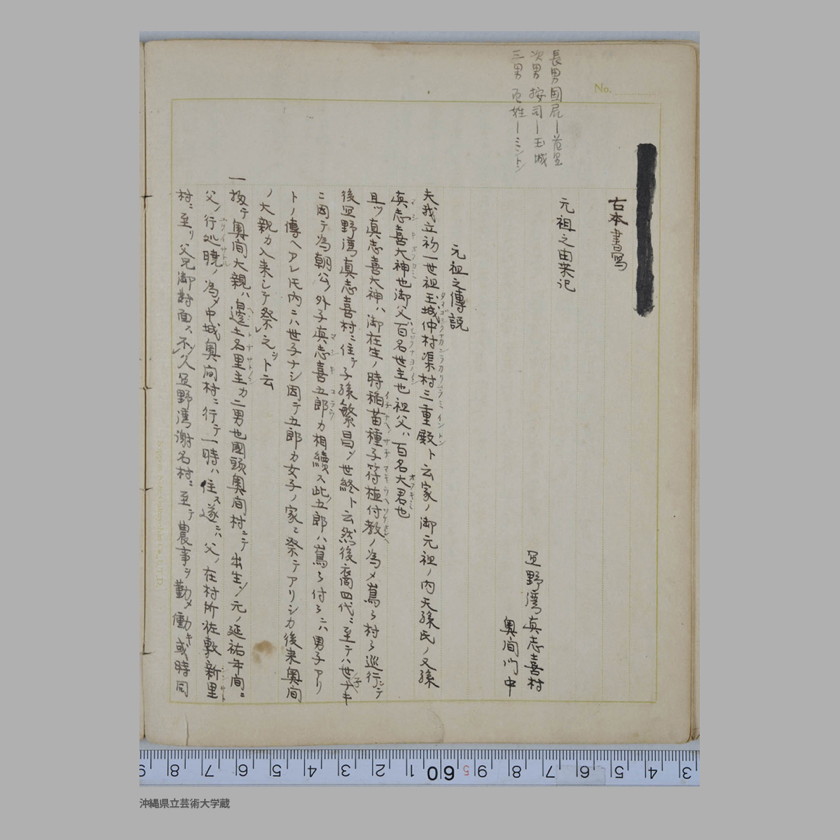 長男 国尻ー
次男 按司ー玉城
三男 百姓ーミントン
No.
古本書写
元祖之由来記
宜野湾真志喜村
奥間門中
元祖之傳説
夫我立初一世祖玉城仲村渠村三重殿ト云家ノ御元祖ノ内天孫氏ノ又孫
真志喜大神也御父ハ百名世主也祖父ハ百名大君也
且ツ真志喜大神ハ御在生ノ時稲苗種子苻植付教ノ為メ嶌々村々巡行シテ
後宜野湾真志喜村ニ住テ子孫繁昌シ世終ト云然後裔四代ニ至テハ世子ナキ
ニ因テ為朝公ノ外子真志喜五郎カ相續ス此五郎ハ嶌々付々ニハ男子アリ
トノ傳ヘアレ共内ニハ世子ナシ因テ五郎カ女子ノ家ニ祭テアリシカ後来奥間
ノ大親カ入来シテ祭之ヲト云
一扨テ奥間大親ハ邊土名里主カ二男也國頭奥間村ニテ出生シ元ノ延祐年間ニ
父ノ行処暁ノ為ノ中城奥間村ニ行テ一時ハ住ス遂ニハ父ノ在村所佐敷新里
村ニ至リ父兄御対面ス不久宜野湾謝名村ニ至テ農事ヲ勤メ働キ或時同
9 8 7 6 5 4 3 2 1 60 9 8 7 6 5 4 3
沖縄県立芸術大学蔵